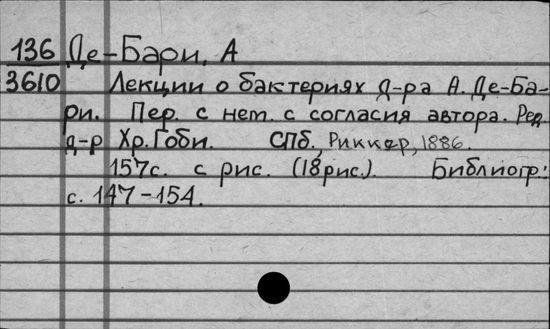 136 Де-Бари, А
3610 Лекции о бактериях д-ра А. Де-Ба-
ри. Пер. с нем. с согласия автора. Ред.
д-р Хр. Гоби. СПб., Риккер, 1886.
157с. с рис. (18рис.) Библиогр.:
с. 147-154.